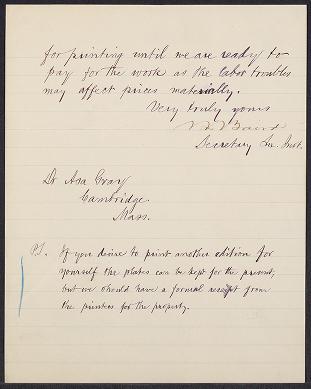 for printing until we are ready to
pay for the work as the labor troubles
may affect prices materially.
Very truly yours
Baird
Secretary Sm. Inst.
Dr Asa Gray
Cambridge.
Mass.
P.S. If you desire to print another edition for
yourself the plates can be kept for the present;
but we should have a formal receipt from
the printers for the property.